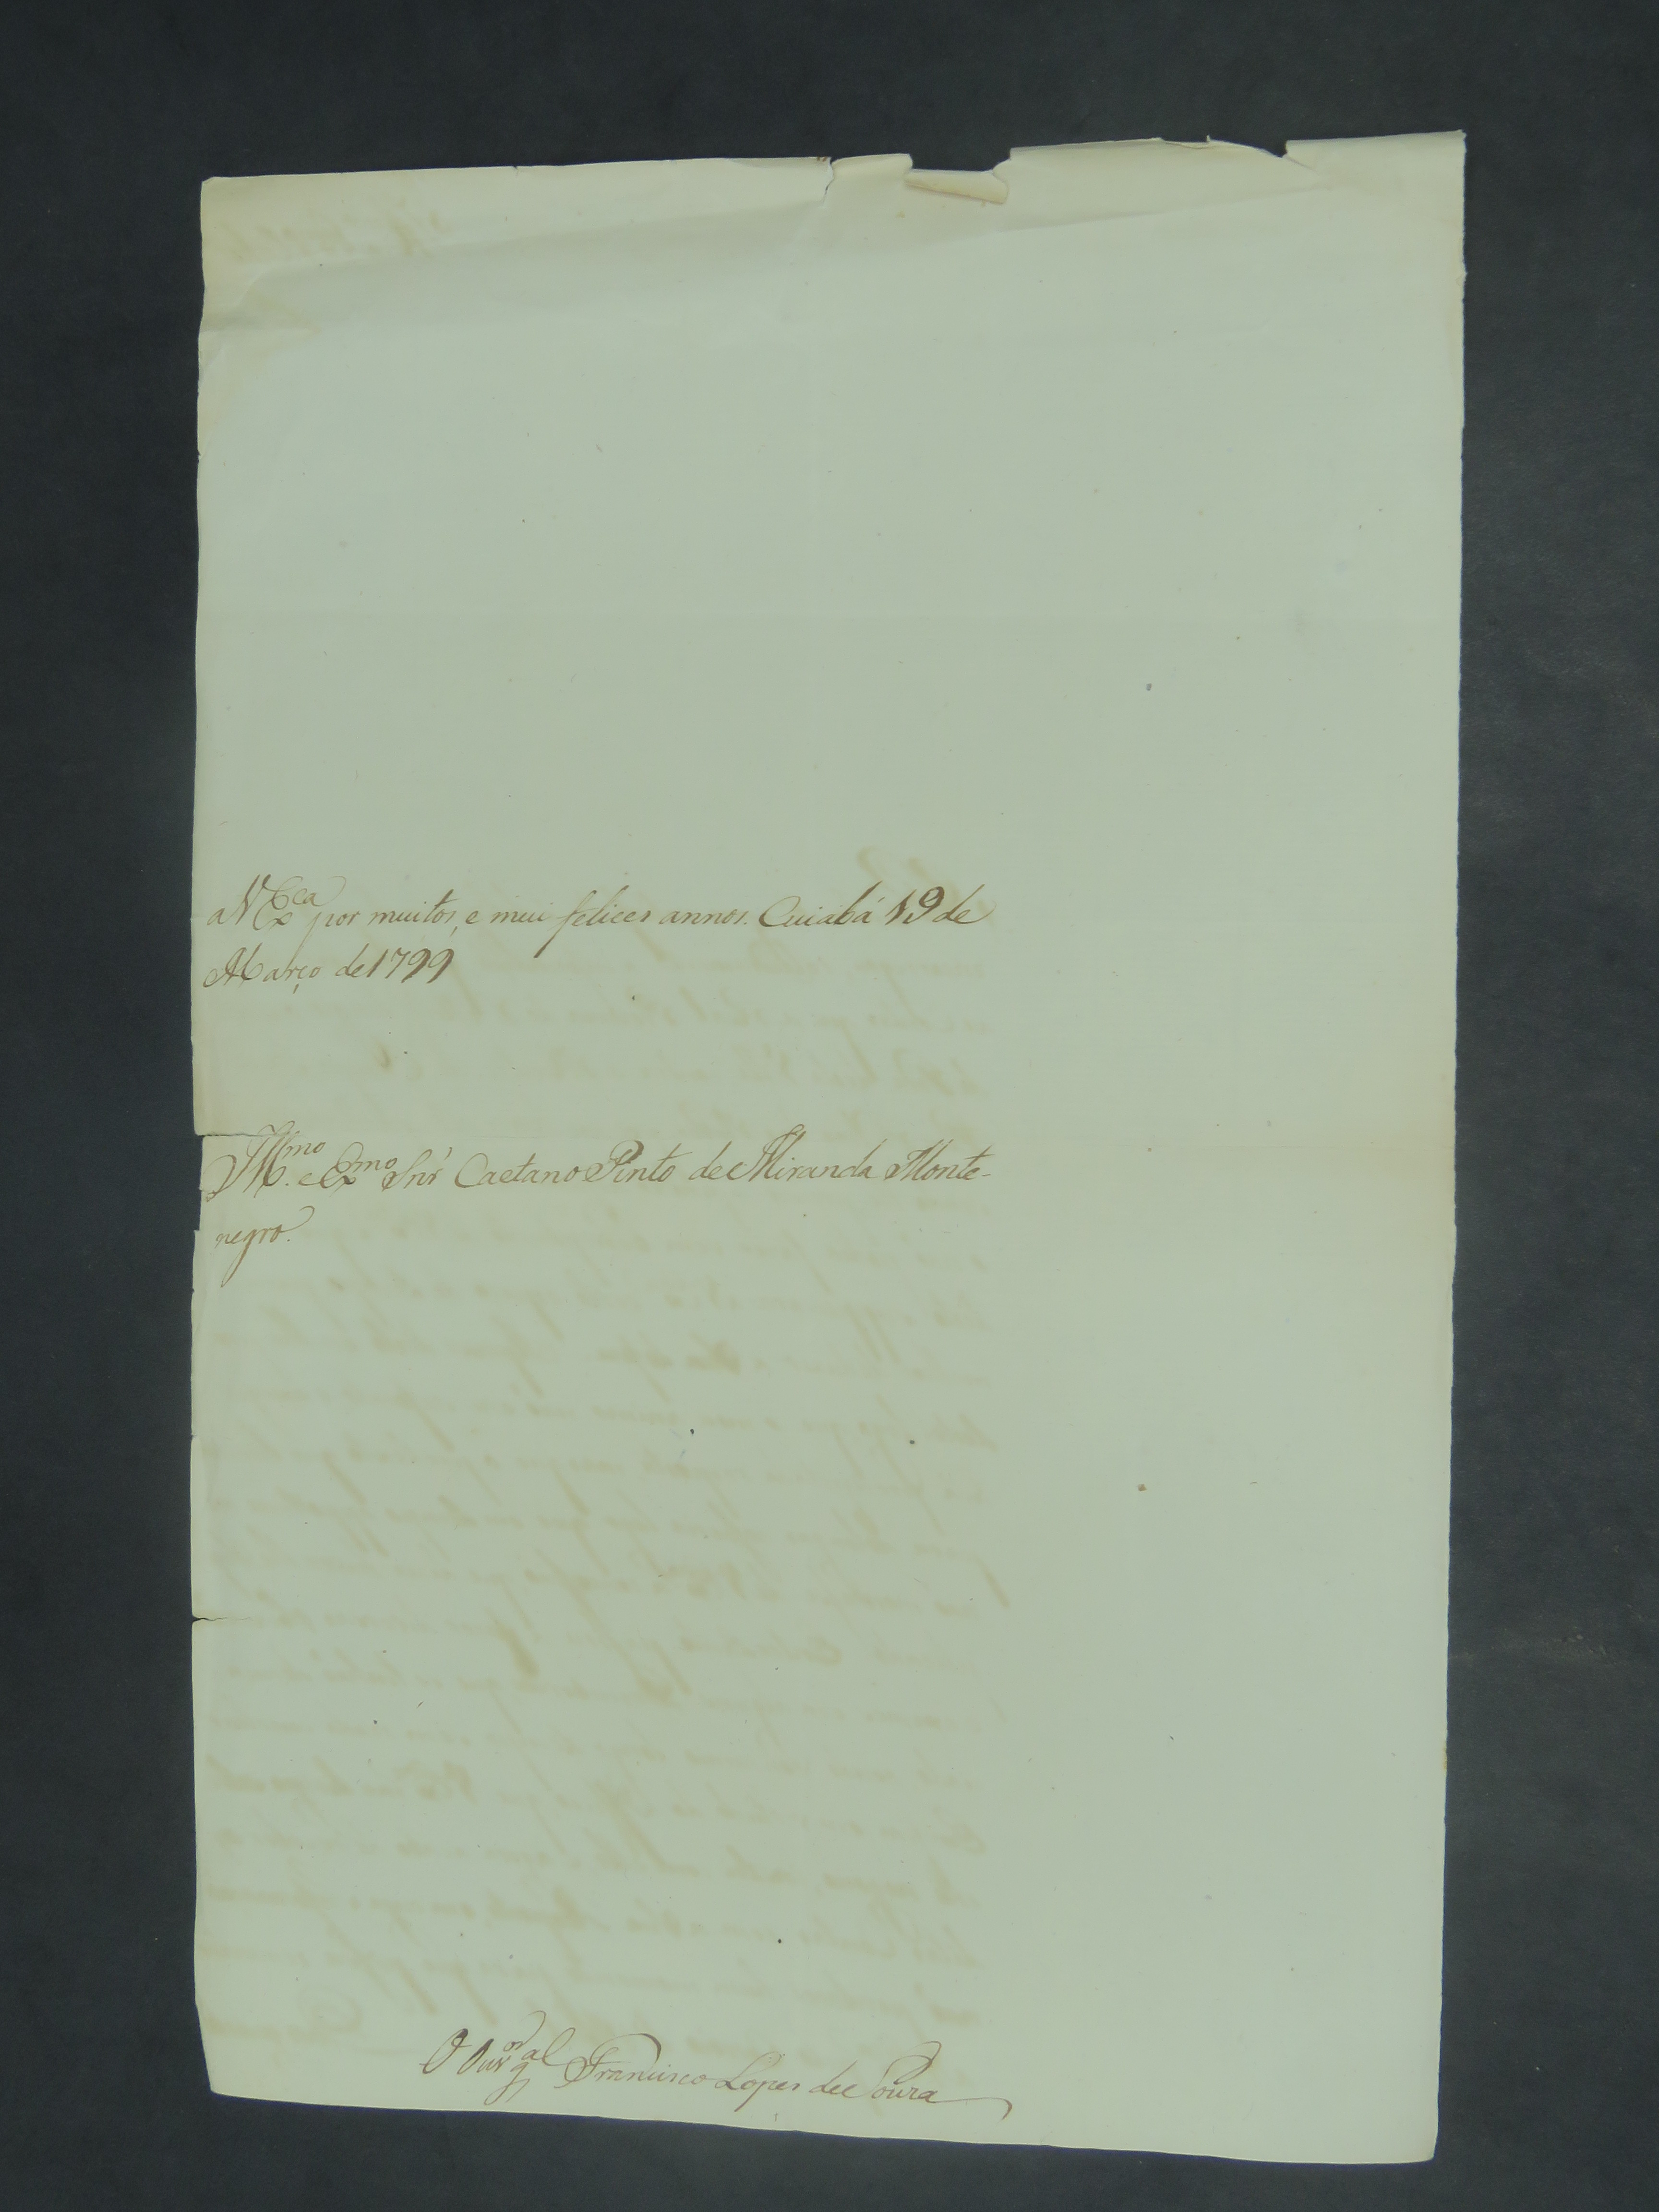 a V Ex.ca por muitos, e mui felices annos. Cuiabá 19 de
Março de 1799
Ill.mo e Ex.mo Snr̃ Caetano Pinto de Miranda Monte-
negro.
O Ouv.or g.al Francisco Lopes de Souza